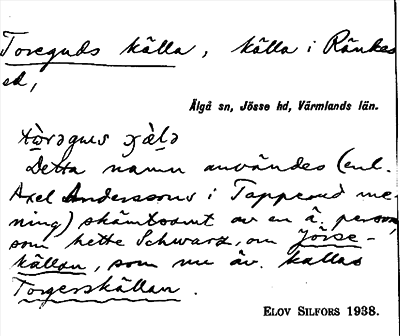 Toreguds källa, källa i Ränkes
ed,
Älgå sn, Jösse hd, Värmlands län.
Detta namn användes (enl.
Axel Anderssons i Tapperud me-
ning) skämtsamt av en ä. person,
som hette Schwarz, om Jörse-
källan, som nu äv. kallas
Torgerskällan.
ELOV SILFORS 1938.